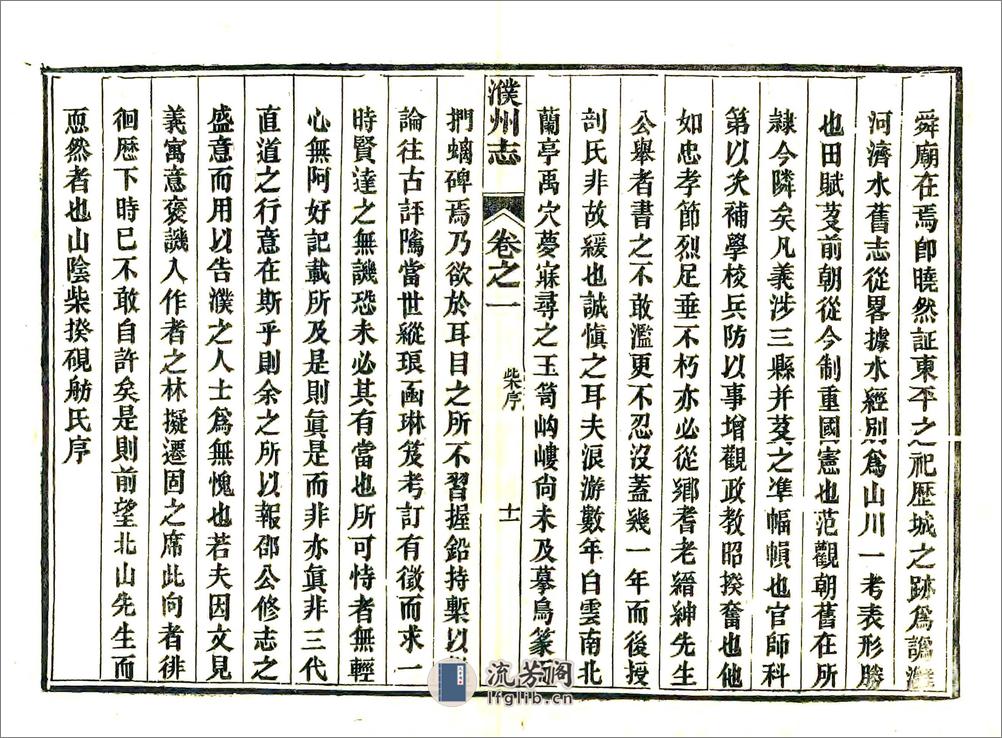 舜廟在焉卽曉然証東平之祀歷城之跡爲譌
河濟水舊志從畧據水經別爲山川一考表形勝
也田賦芟前朝從今制重國憲也范觀朝舊在所
隸今隣矣凡義涉三縣并芟之凖幅幀也官師科
第以次補學校兵防以事增觀政教昭揆奮也他
如忠孝節烈足垂不朽亦必從鄉耆老縉紳先生
公舉者書之不敢濫更不忍沒蓋幾一年而後授
剖氏非故緩也誠愼之耳夫浪游數年白雲南北
蘭亭禹穴夢寐尋之玉笥岣嶁尙未及摹鳥篆
濮州志
卷之一
柴序
十一
捫螭碑焉乃欲於耳目之所不習握鉛持槧以
論往古評隲當世縱琅函琳笈考訂有徵而求一
時賢達之無譏恐未必其有當也所可恃者無輕
心無阿好記載所及是則眞是而非亦眞非三代
直道之行意在斯乎則余之所以報邵公修志之
盛意而用以告濮之人士爲無愧也若夫因文見
義寓意褒譏入作者之林擬遷固之席此向者徘
徊歷下時已不敢自許矣是則前望北山先生而
恧然者也山陰柴揆硯舫氏序
流芳阁
lfglib.cn